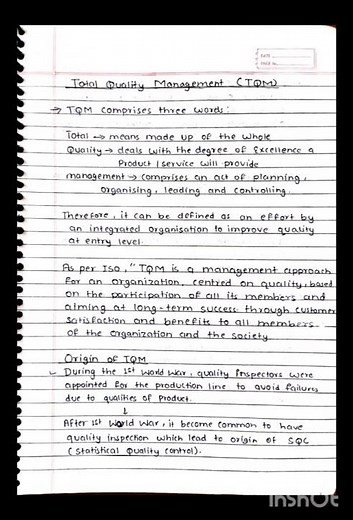 DATE
PAGE NO.
Total Quality Management (TQM)
→ TQM comprises three words:
Total → means made up of the whole
Quality → deals with the degree of Excellence a
Product / service will provide
management → comprises an act of planning,
organising, leading and controlling
Therefore, it can be defined as an effort by
an integrated organisation to improve quality
at entry level
As per ISO, " TQM is a management approach
for an organization, centred on quality, based
on the participation of all its members and
aiming at long-term success through customer
satisfaction and benefits to all members
of the organization and the society
Origin of TQM
During the 1st World War, quality inspectors were
appointed for the production line to avoid failures
due to qualities of Product.
↓
After 1st World War, it become common to have
quality inspection which lead to origin of SQC
(Statistical Quality control).
InShot